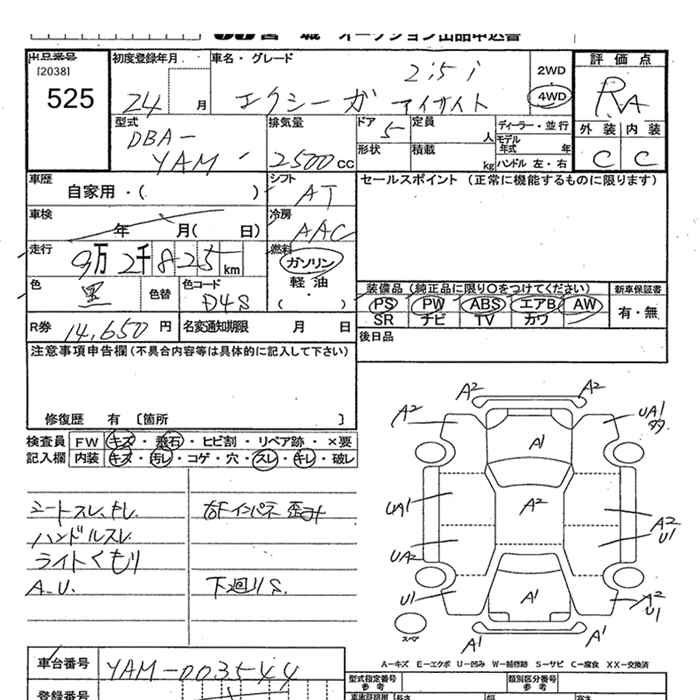 宮 城 オークション出品申込書
出品番号 初度登録年月 車名・グレード 評価点
[2038] 2.5 i 2WD
525 24 月 エクシーガ アイサイト 4WD RA
型式 排気量 ドア 定員 人 ディーラー・並行 外装 内装
DBA- 5 モデル年式 年
YAM 2500 CC 形状 積載 kg ハンドル 左・右 C C
車歴 シフト セールスポイント (正常に機能するものに限ります)
自家用・( ) AT
車検 冷房
年 月( 日) AAC
走行 燃料
9万2千825 km ガソリン
色 色替 色コード 軽油 装備品 (純正品に限り○をつけてください) 新車保証書
黒 D4S ( ・ ) PS PW ABS エアB AW 有・無
SR ナビ TV カワ
R券 14,650 円 名変通知期限 月 日 後日品
注意事項申告欄(不具合内容等は具体的に記入して下さい)
修復歴 有 〔箇所 〕
検査員 FW キズ・飛石・ヒビ割・リペア跡・×要
記入欄 内装 キズ・汚れ・コゲ・穴・スレ・キレ・破レ
シートスレ、キレ
ハンドルスレ
ライトくもり
A.U.
右Fインパネ歪み
下廻りS
A2 A2
A2 UA1
A1
UA1 A2 A2
U1
UA2
U1 A1 A2
U1
スペア A1 A1
A-キズ E-エクボ U-凹み W-補修跡 S-サビ C-腐食 XX-交換済
車台番号 YAM-003544
型式指定番号 類別区分番号
参考 参考
登録番号